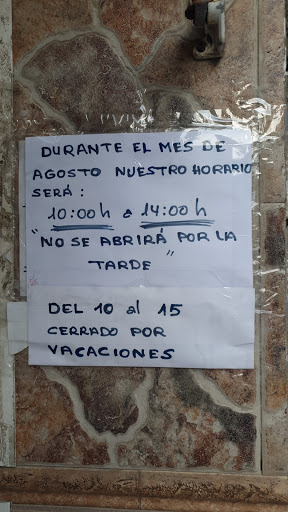 DURANTE EL MES DE
AGOSTO NUESTRO HORARIO
SERÁ :
10:00 h a 14:00 h
"NO SE ABRIRÁ POR LA
TARDE"
DEL 10 al 15
CERRADO POR
VACACIONES